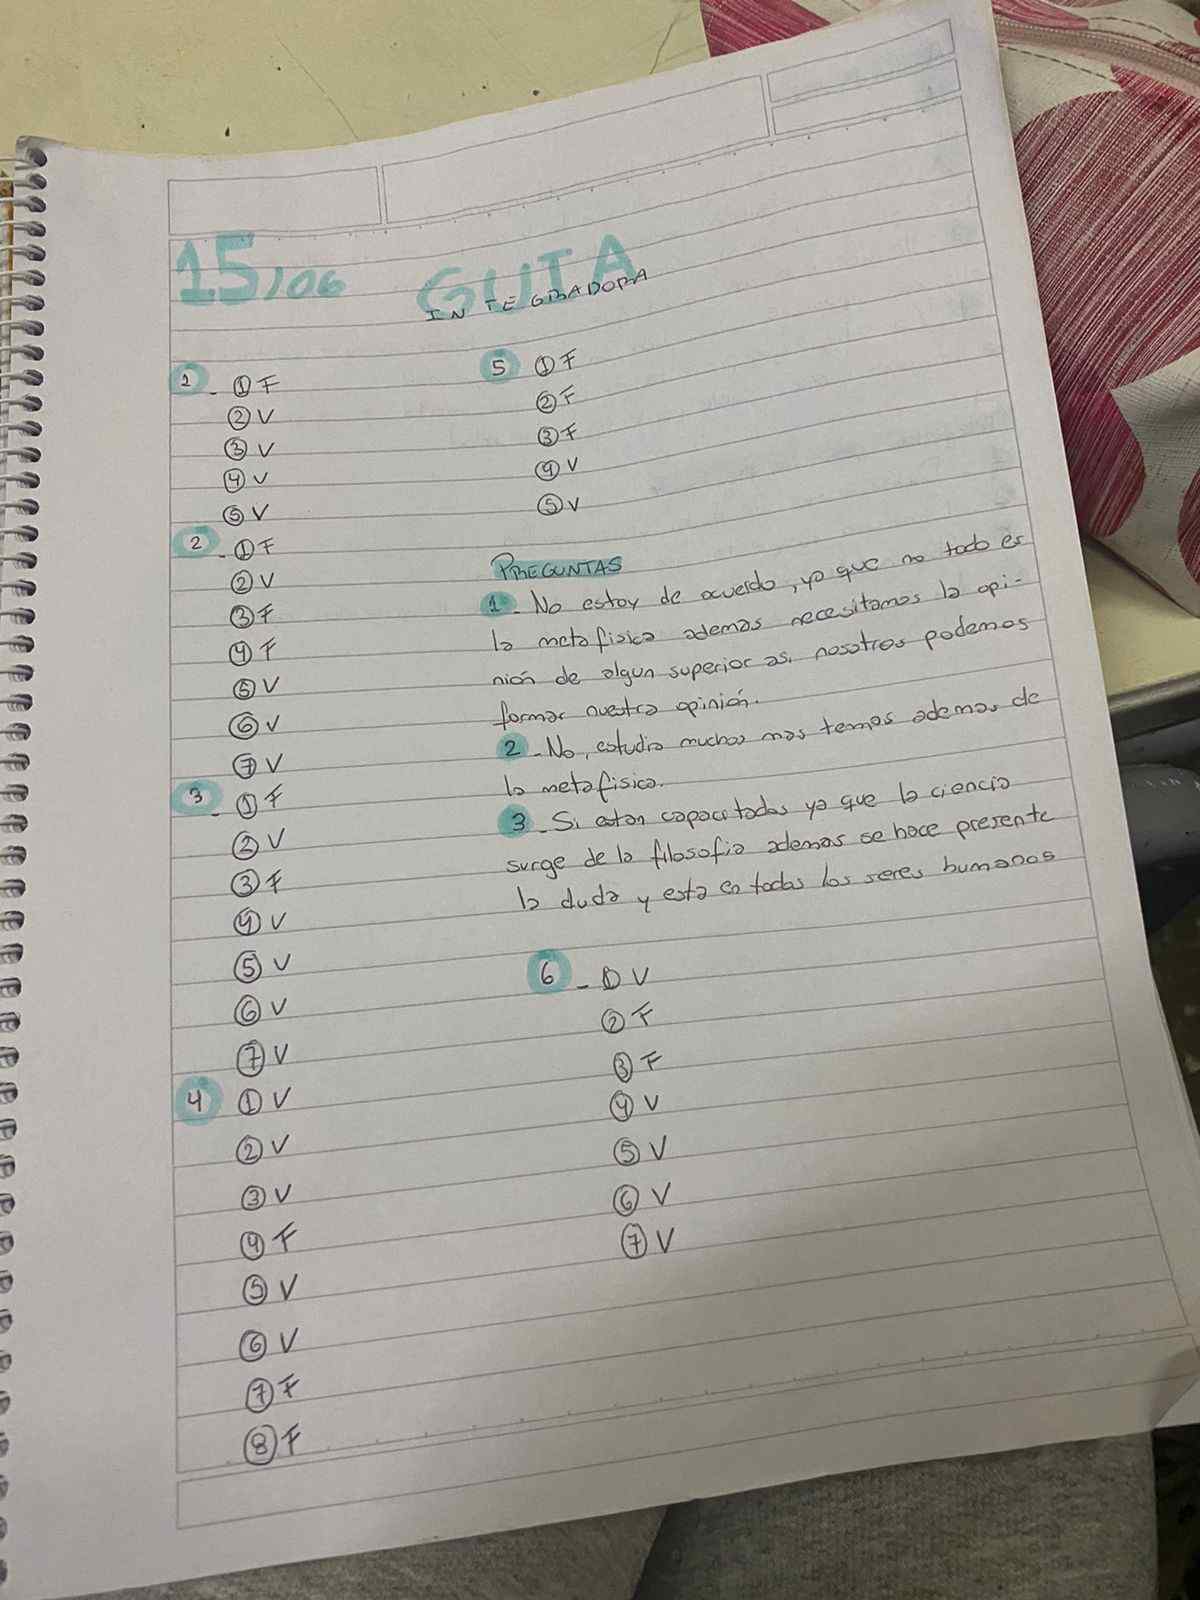 15/06 GUIA
INTEGRADORA
1 - ① F
② V
③ V
④ V
⑤ V
2 - ① F
② V
③ F
④ F
⑤ V
⑥ V
⑦ V
3 - ① F
② V
③ F
④ V
⑤ V
⑥ V
⑦ V
4 ① V
② V
③ V
④ F
⑤ V
⑥ V
⑦ F
⑧ F
5 ① F
② F
③ F
④ V
⑤ V
PREGUNTAS
1 - No estoy de acuerdo, ya que no todo es
la metafisica ademas necesitamos la opi-
nión de algun superior asi nosotros podemos
formar nuestra opinión.
2 - No, estudia muchos mas temas ademas de
la metafisica.
3 - Si estan capacitadas ya que la ciencia
surge de la filosofia ademas se hace presente
la duda y esta en todas los seres humanos
6 - ① V
② F
③ F
④ V
⑤ V
⑥ V
⑦ V